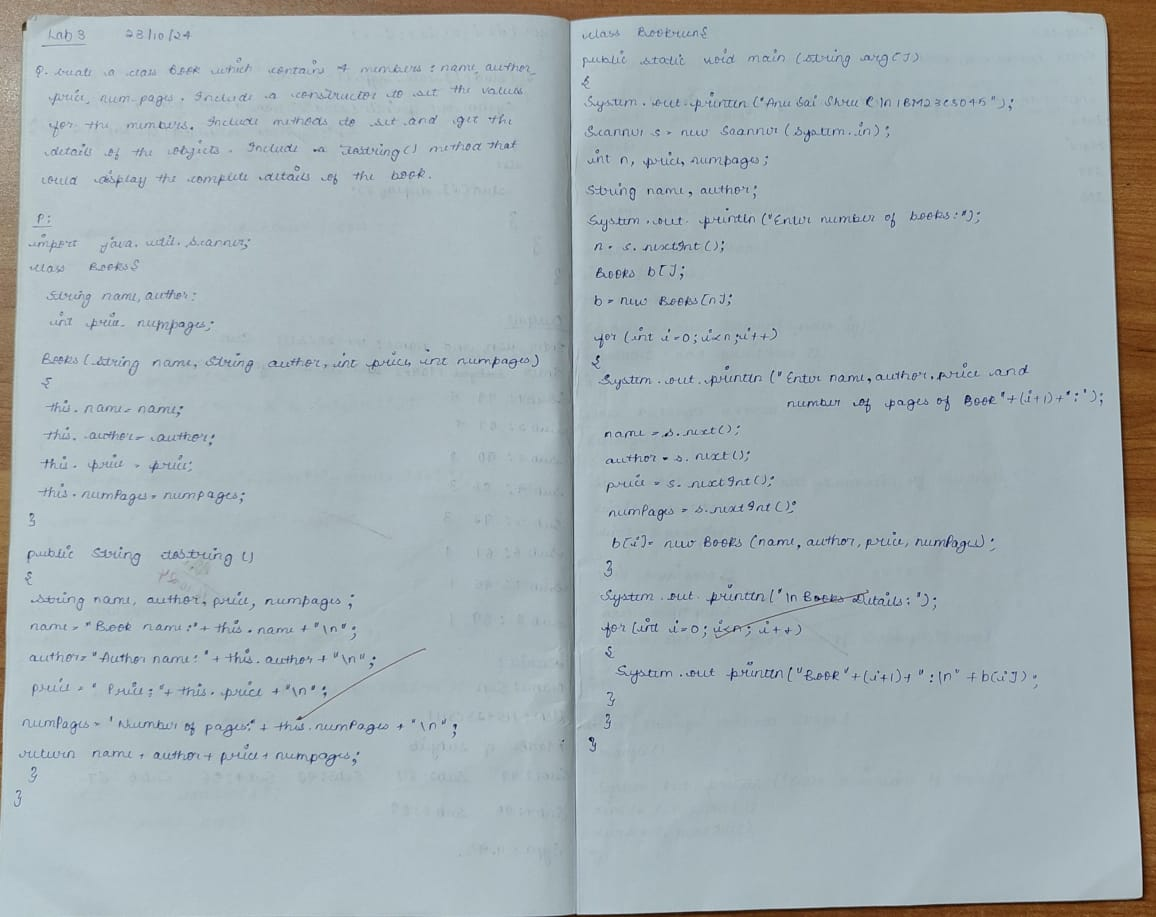 Lab 3 23/10/24
Q. Create a class Book which contains 4 members: name, author,
price, num-pages. Include a constructor to set the values
for the members. Include methods to set and get the
details of the objects. Include a toString() method that
could display the complete details of the book.
P:
import java.util.Scanner;
class Books{
String name, author;
int price, numpages;
Books (String name, String author, int price, int numpages)
{
this.name = name;
this.author = author;
this.price = price;
this.numPages = numpages;
}
public String toString ()
{
String name, author, price, numpages;
name = "Book name:" + this.name + "\n";
author = "Author name:" + this.author + "\n";
price = "Price:" + this.price + "\n";
numPages = "Number of pages:" + this.numPages + "\n";
return name + author + price + numpages;
}
}
class Bookrun{
public static void main (String arg[])
{
System.out.println ("Anu Sai Shree \n 1BM23CS045");
Scanner s = new Scanner (System.in);
int n, price, numpages;
String name, author;
System.out.println ("Enter number of books:");
n = s.nextInt();
Books b[];
b = new Books[n];
for (int i=0; i<n; i++)
{
System.out.println ("Enter name, author, price and
number of pages of Book"+(i+1)+":");
name = s.next();
author = s.next();
price = s.nextInt();
numPages = s.nextInt();
b[i] = new Books (name, author, price, numPages);
}
System.out.println ("\n Books Details:");
for (int i=0; i<n; i++)
{
System.out println ("Book"+(i+1)+":\n" + b[i]);
}
}
}